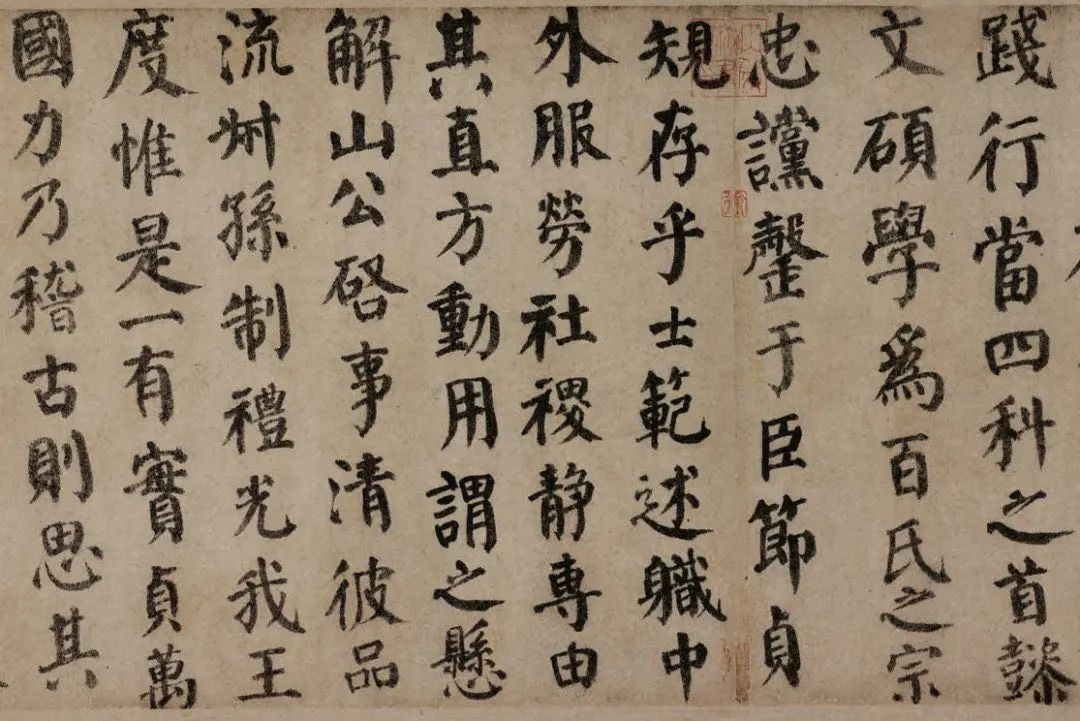 践行當四科之首懿
文碩學為百氏之宗
忠讜罄于臣節貞
規存乎士範述職中
外服勞社稷静専由
其直方動用謂之懸
解山公啓事清彼品
流叔孫制禮光我王
度惟是一有實貞萬
國力乃稽古則思其